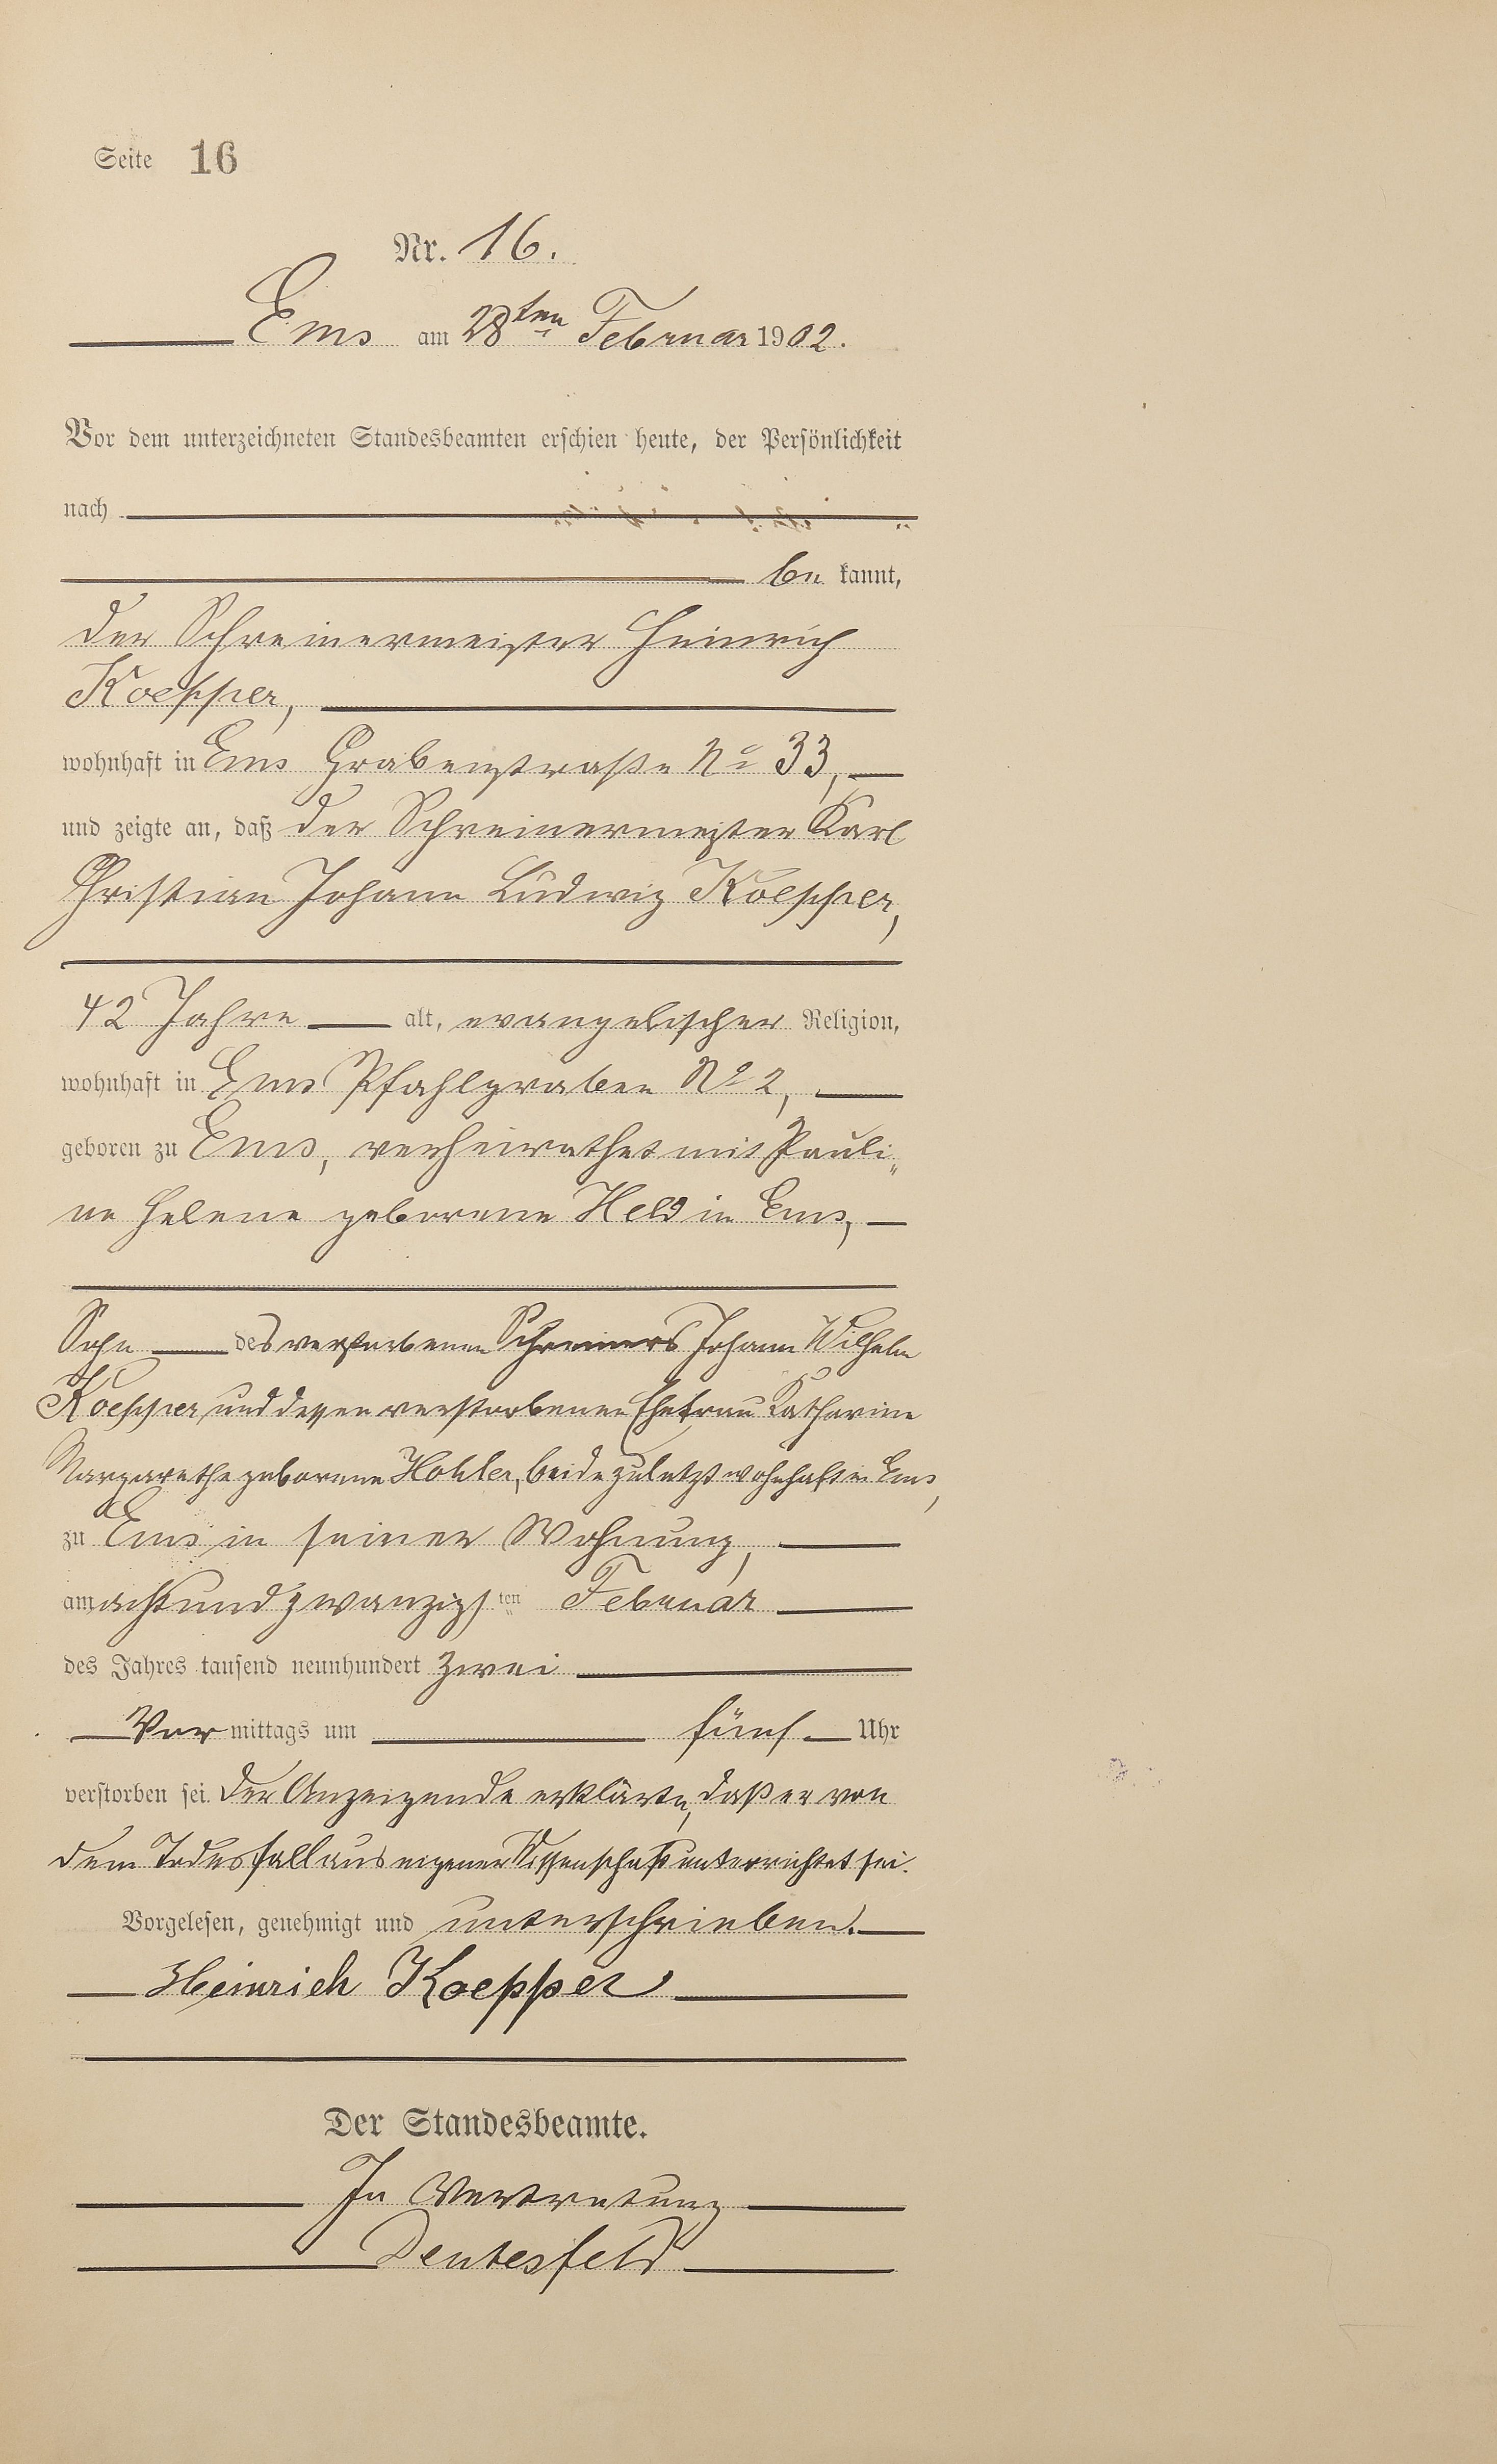 Seite 16
Nr. 16.
Ems am 28ten Februar 1902.
Vor dem unterzeichneten Standesbeamten erschien heute, der Persönlichkeit
nach
be kannt,
der Schreinermeister Heinrich
Koepper,
wohnhaft in Ems Grabenstraße No 33,
und zeigte an, daß der Schreinermeister Karl
Christian Johann Ludwig Koepper,
42 Jahre alt, evangelischer Religion,
wohnhaft in Ems Pfahlgraben No 2,
geboren zu Ems, verheirathet mit Pauli„
ne Helene geborene Held in Ems,
Sohn des verstorbenen Schreiners Johann Wilhelm
Koepper und dessen verstorbenen Ehefrau Katharine
Margarethe geborene Hohler, beide zuletzt wohnhaft in Ems,
zu Ems in seiner Wohnung,
am achtundzwanzigsten Februar
des Jahres tausend neunhundert zwei
Vor mittags um fünf Uhr
verstorben sei. Der Anzeigende erklärte, daß er von
dem Todesfall aus eigener Wissenschaft unterrichtet sei.
Vorgelesen, genehmigt und unterschrieben.
Heinrich Koepper
Der Standesbeamte.
In Vertretung
Deutesfeld